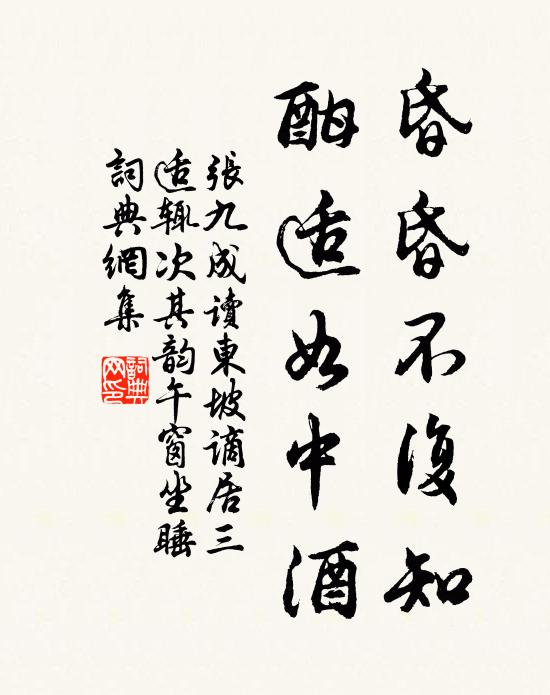 昏昏不復知
酣适如中酒
張九成讀東坡謫居三
适辄次其韵午窗坐睡
詞典網集
詞典网印